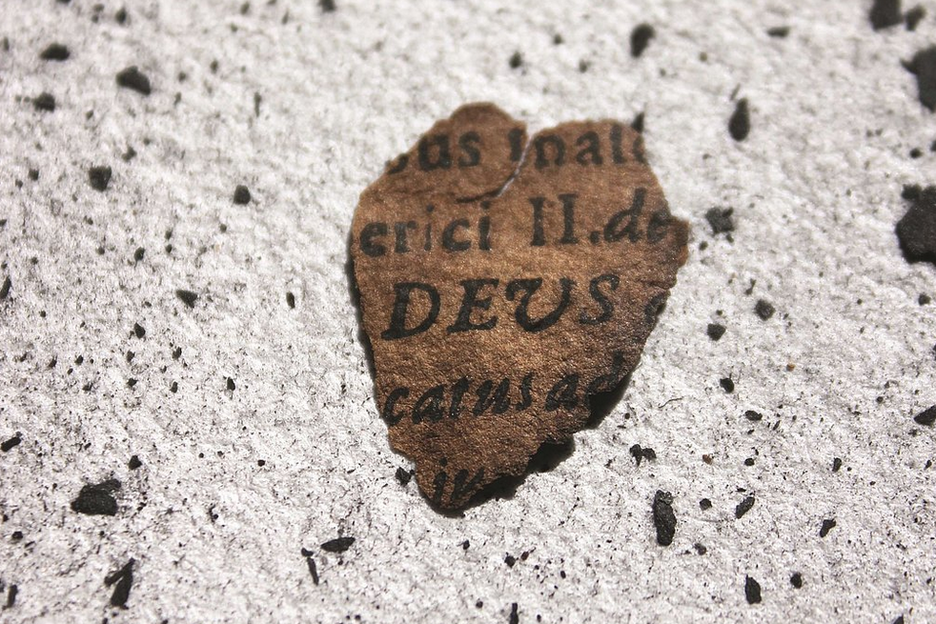 us mat
erici II.de
DEUS
catus ad
iv